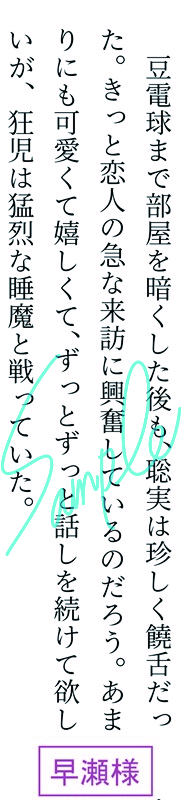 豆電球まで部屋を暗くした後も、聡実は珍しく饒舌だっ
た。きっと恋人の急な来訪に興奮しているのだろう。あま
りにも可愛くて嬉しくて、ずっとずっと話しを続けて欲し
いが、狂児は猛烈な睡魔と戦っていた。
Sample
早瀬様